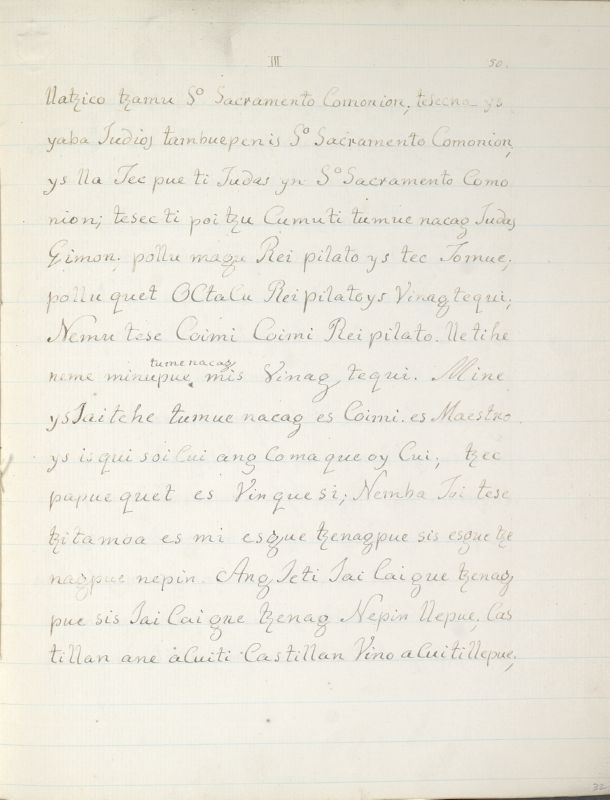 III 50.
Natzico tzamu Sº Sacramento Comonion, tesecna ys
yaba Judios tambuepenis Sº Sacramento Comonion,
ys lla Tec pue ti Judas yn Sº Sacramento Como
nion; tesec ti poi tzu Cumuti tumue nacag Judas
Gimon, pollu magu Rei pilato ys tec Tomue;
pollu quet OCtalu Rei pilato ys Vinag tequi;
Nemu tese Coimi Coimi Rei pilato. Ue ti he
tume nacag
neme minupue, mis Vinag tequi. Mine
ys Jaitche tumue nacag es Coimi. es Maestro
ys is qui soi Cui ang Coma que oy Cui; tzec
papue quet es Vin que si; Nemba Joi tese
tzitamoa es mi esgue tzenagpue sis esgue tze
nagpue nepin. Ang Jeti Jai Cai gue tzenag
pue sis Jai Cai gne tzenag Nepin llepue, Cas
tillan ane aCuiti Castillan Vino aCuiti llepue,
32